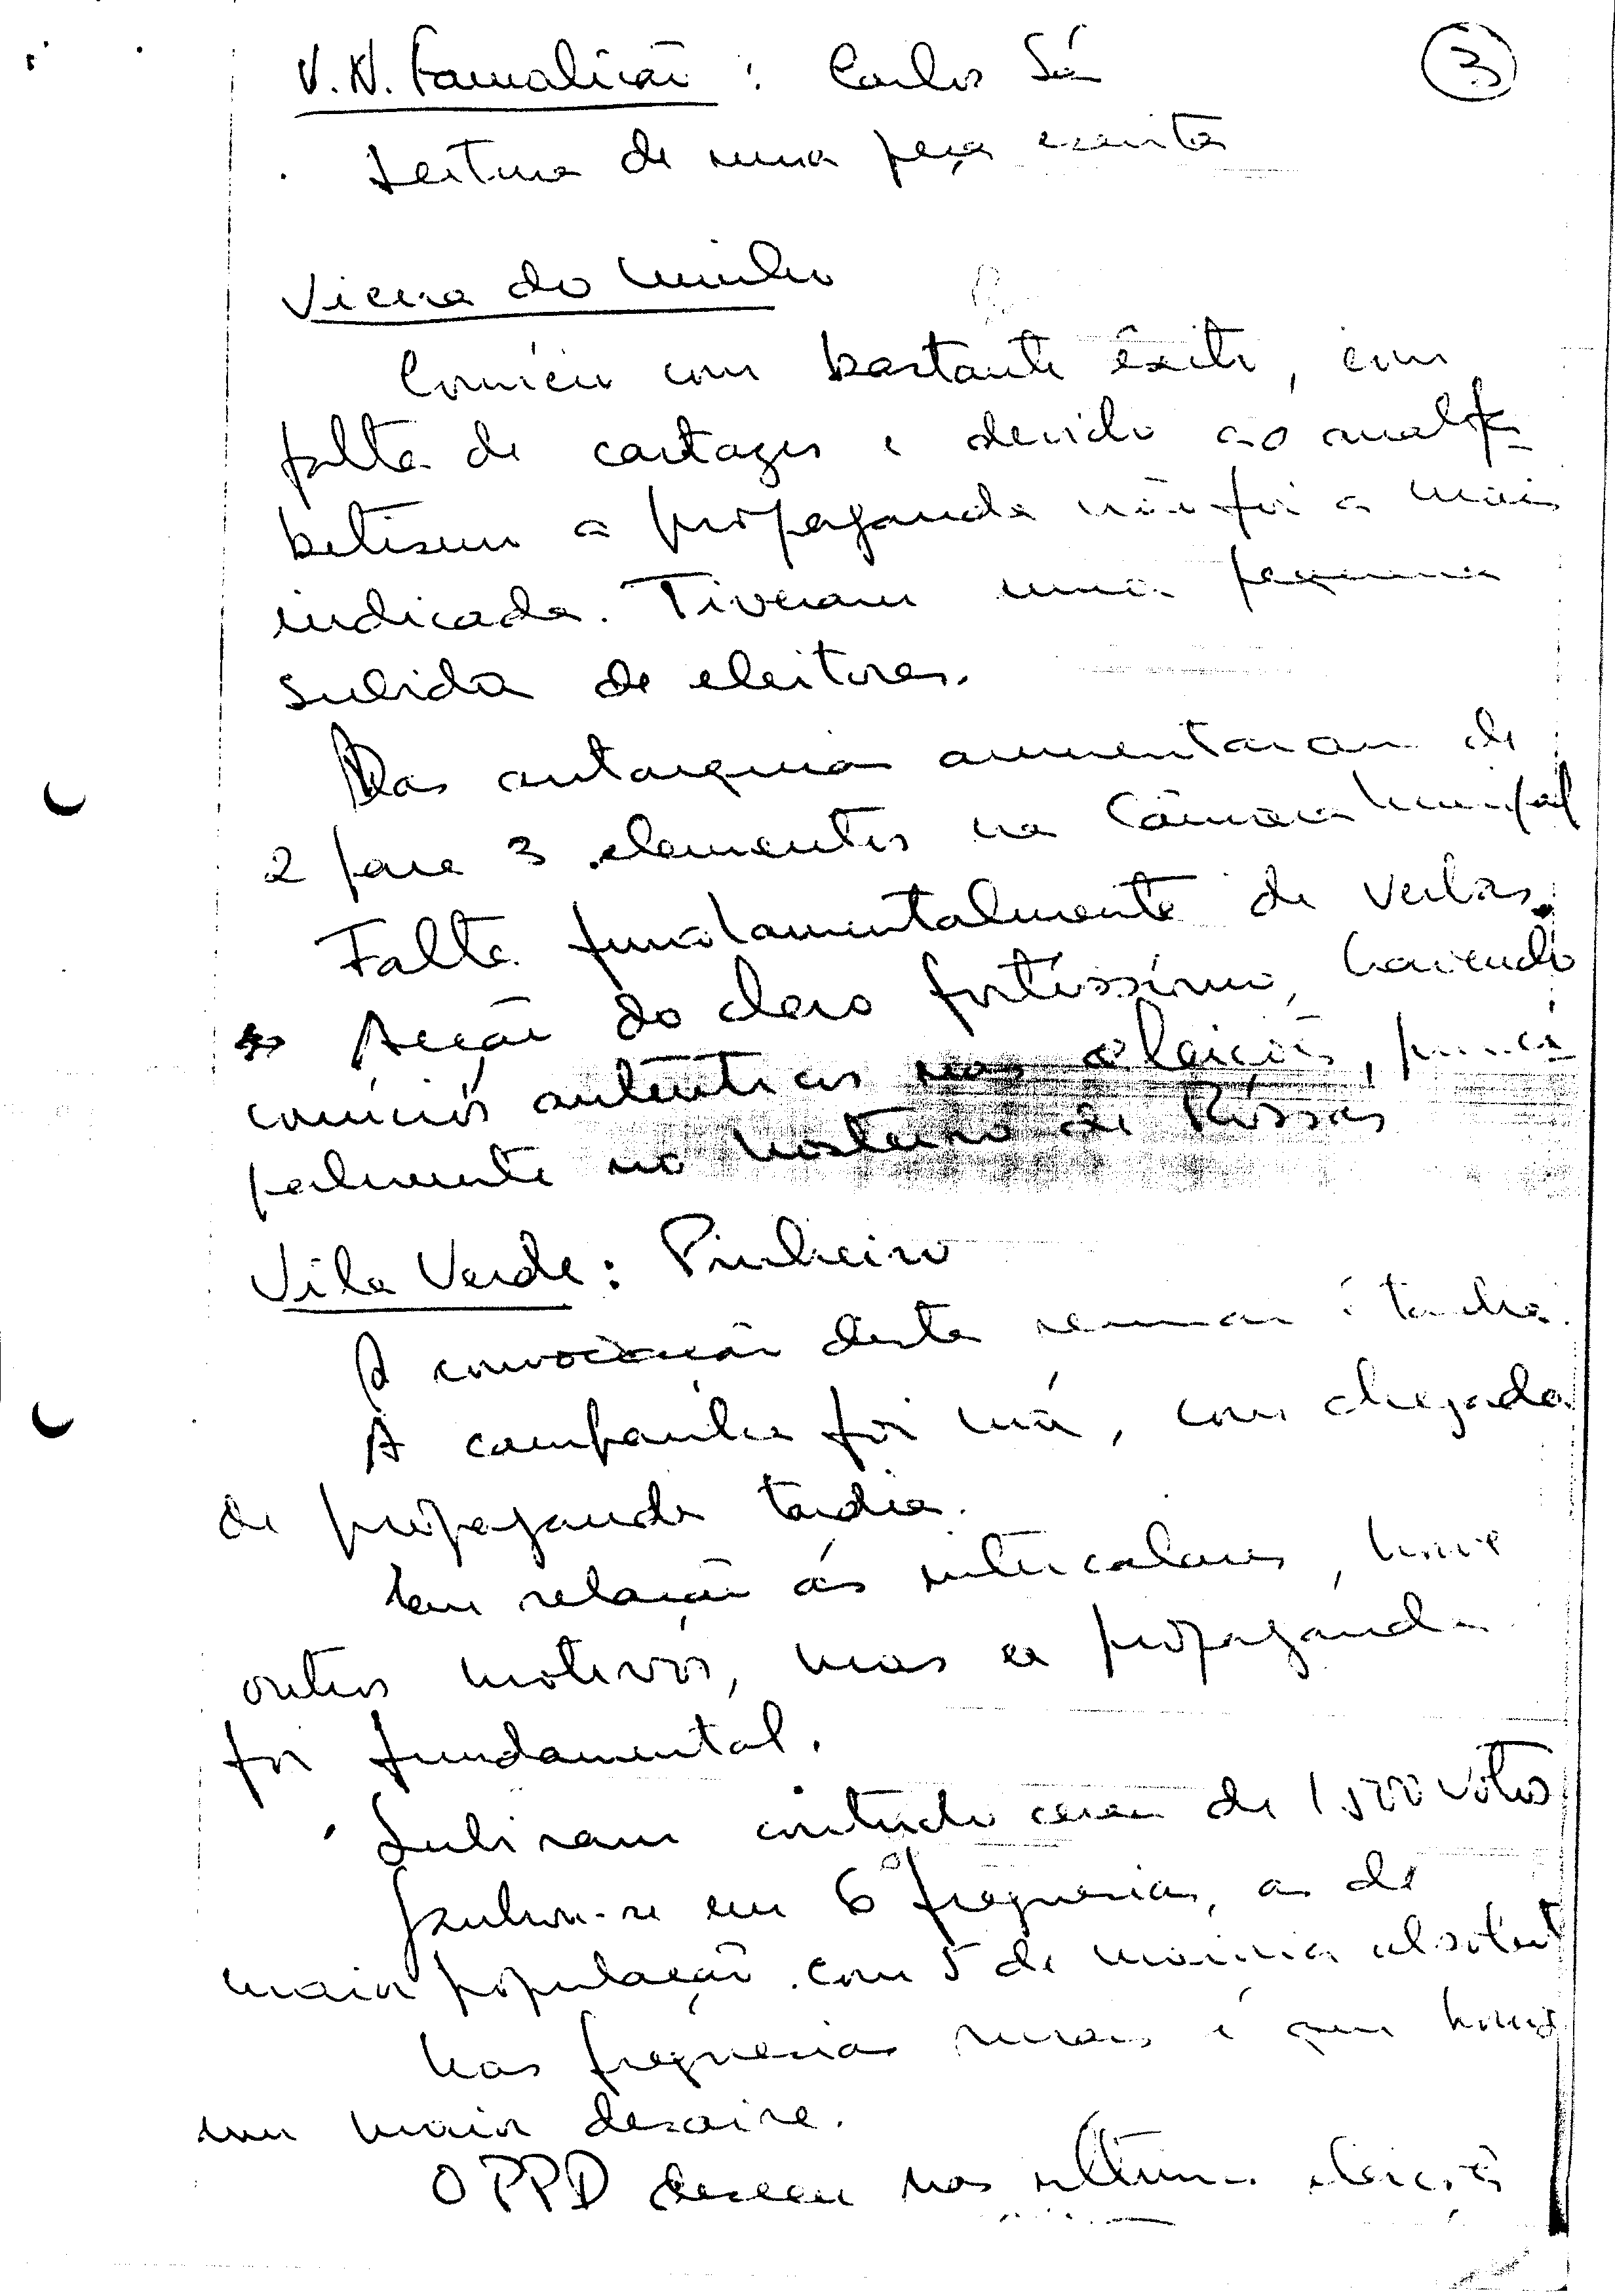 3
V.N. Famalicão : Carlos Sá
Leitura de uma peça escrita
Vieira do Minho
Comício com bastante êxito, com
falta de cartazes e devido ao analfa-
betismo a propaganda não foi a mais
indicada. Tiveram uma pequena
subida de eleitores.
Nas autarquias aumentaram de
2 para 3 elementos na Câmara Municipal
Falta fundamentalmente de verbas.
Acção do clero fortíssimo, havendo
comícios autênticos nas eleições, princi-
palmente no Mosteiro de Rossas
Vila Verde : Pinheiro
A convocação desta reunião é tardia.
A campanha foi má, com chegada
de propaganda tardia.
Em relação às intercalares, houve
outros motivos, mas a propaganda
foi fundamental.
Subiram contudo cerca de 1.500 votos
Ganhou-se em 6 freguesias, as de
maior população com 5 de maioria absoluta
Nas freguesias rurais é que houve
um maior desaire.
O PPD desceu nas últimas eleições